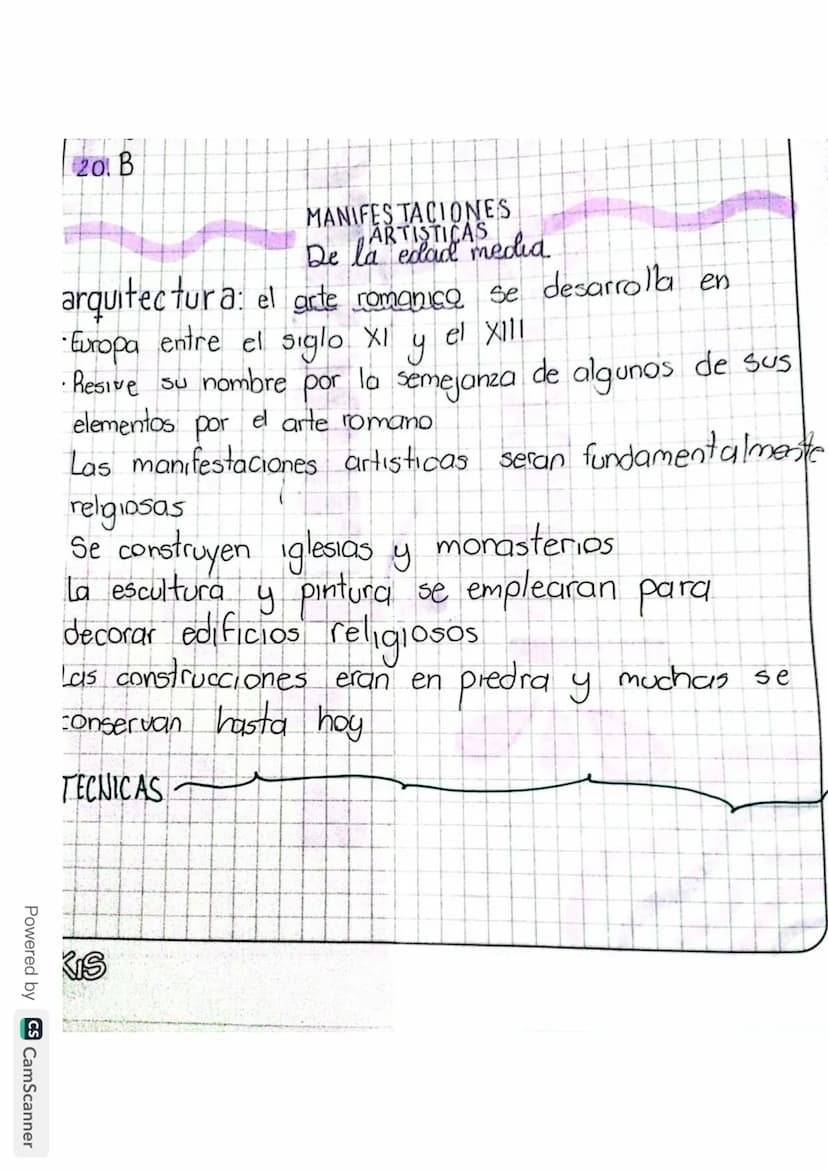 20. B
MANIFESTACIONES
ARTISTICAS
De la edad media
arquitectura: el arte romanico se desarrolla en
·Europa entre el siglo XI y el XIII
·Resive su nombre por la semejanza de algunos de sus
elementos por el arte romano
Las manifestaciones artisticas seran fundamentalmente
relgiosas
Se construyen iglesias y monasterios
la escultura y pintura se emplearan para
decorar edificios religiosos
Las construcciones eran en piedra y muchas se
conservan hasta hoy
TECNICAS
KIS
Powered by CS CamScanner